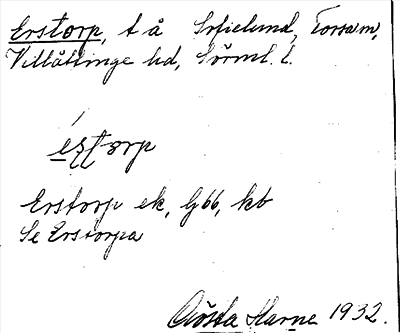 Erstorp, t å Sofielund, Forssa m,
Villåttinge hd, Sörml. l.
éstorp
Erstorp ek, Gbb, kb
Se Erstorpa
Gösta Harne 1932.